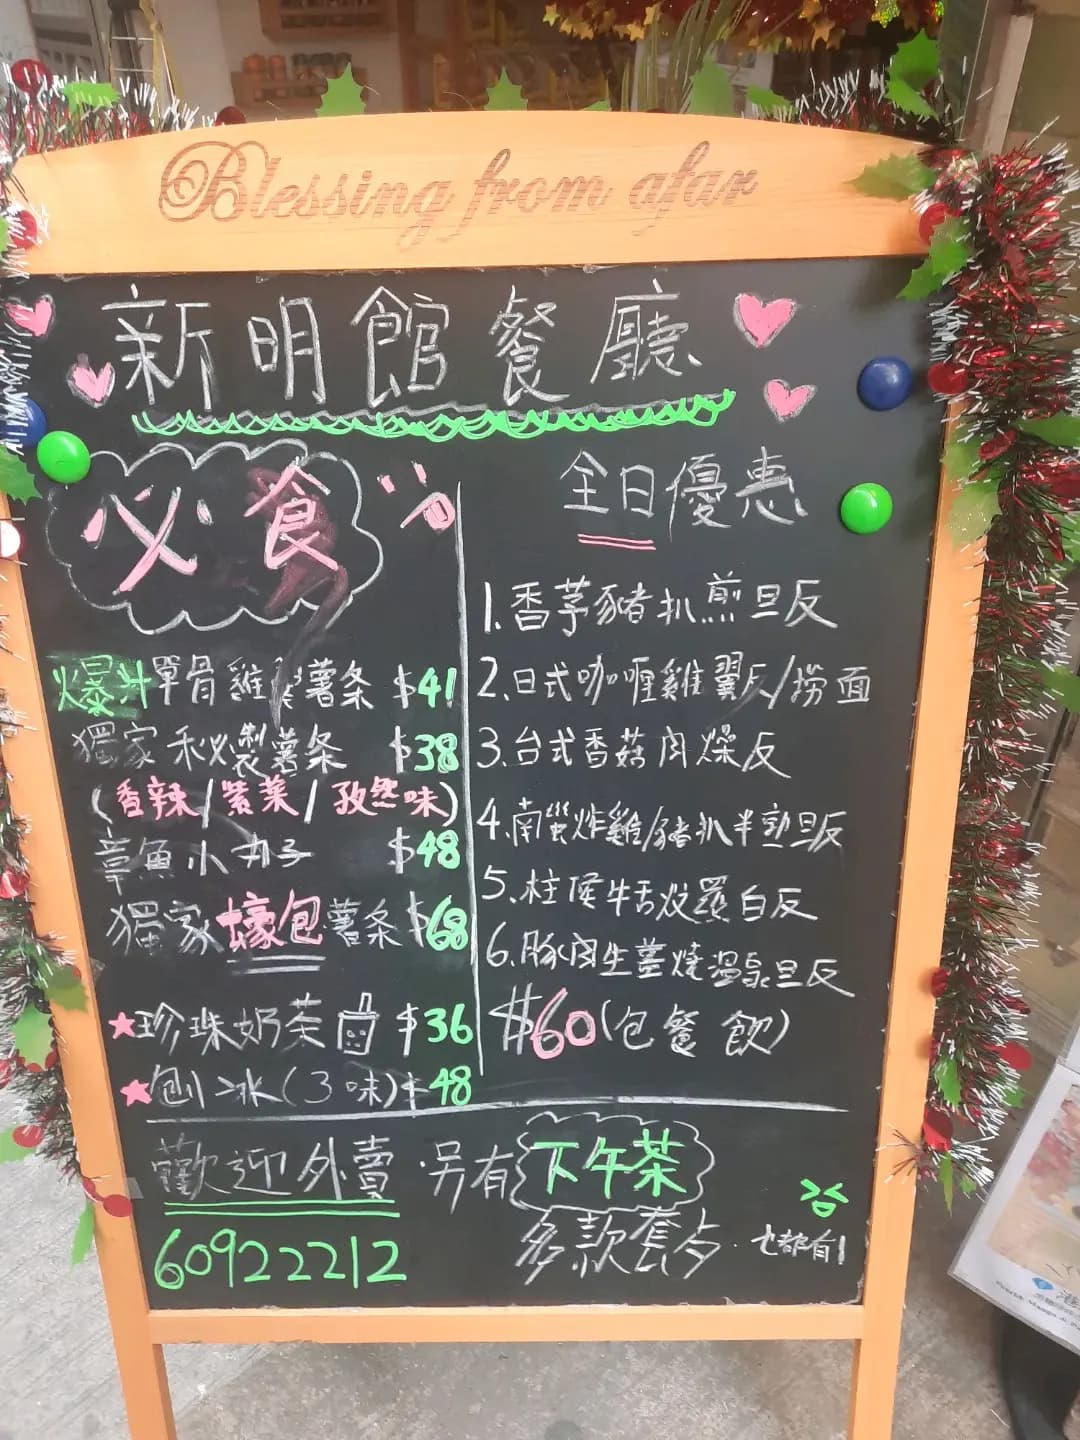 Blessing from afar
新明館餐廳
必食
爆汁單骨雞 薯条 $41
獨家秘製薯条 $38
(香辣/紫菜/孜然味)
章魚小丸子 $48
獨家蠔包薯条 $68
珍珠奶茶 $36
刨冰(3味) $48
全日優惠
1.香芋豬扒煎旦反
2.日式咖喱雞翼反/撈面
3.台式香菇肉燥反
4.南 炸雞/豬扒半熟旦反
5.柱侯牛 炆蘿白反
6.豚肉生薑燒溫泉旦反
$60(包餐飲)
歡迎外賣
60922212
另有下午茶
多款 .七都有!